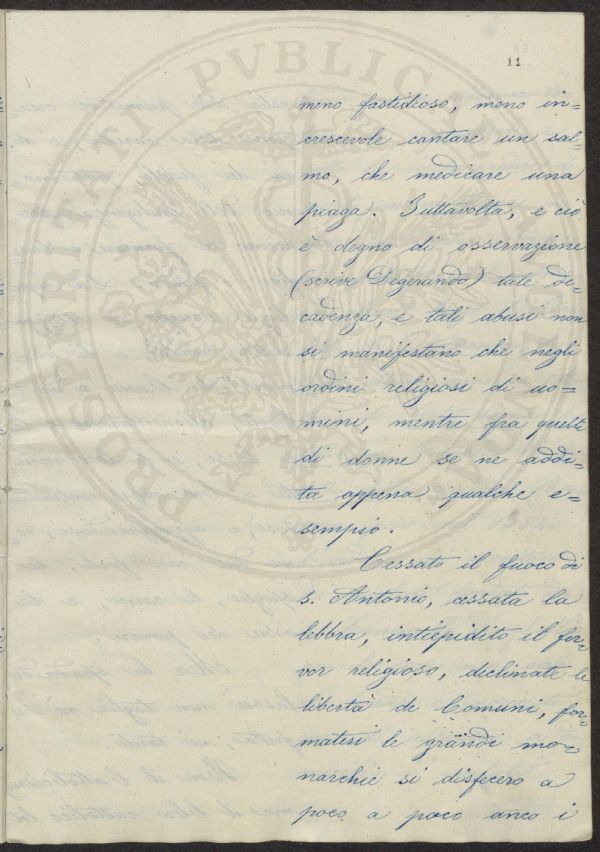 11
meno fastidioso, meno in=
crescevole cantare un sal=
mo, che medicare una
piaga. Tuttavolta, e ciò
è degno di osservazione
(scrive Degerando) tale de=
cadenza, e tali abusi non
si manifestano che negli
ordini religiosi di uo=
mini, mentre fra quelli
di donne se ne addi=
ta appena qualche e=
sempio.
Cessato il fuoco di
s. Antonio, cessata la
lebbra, intiepidito il fer=
vor religioso, declinate le
libertà de Comuni, for=
matesi le grandi mo=
narchie si disfecero a
poco a poco anco i
PROSPERITATI PVBLICAE